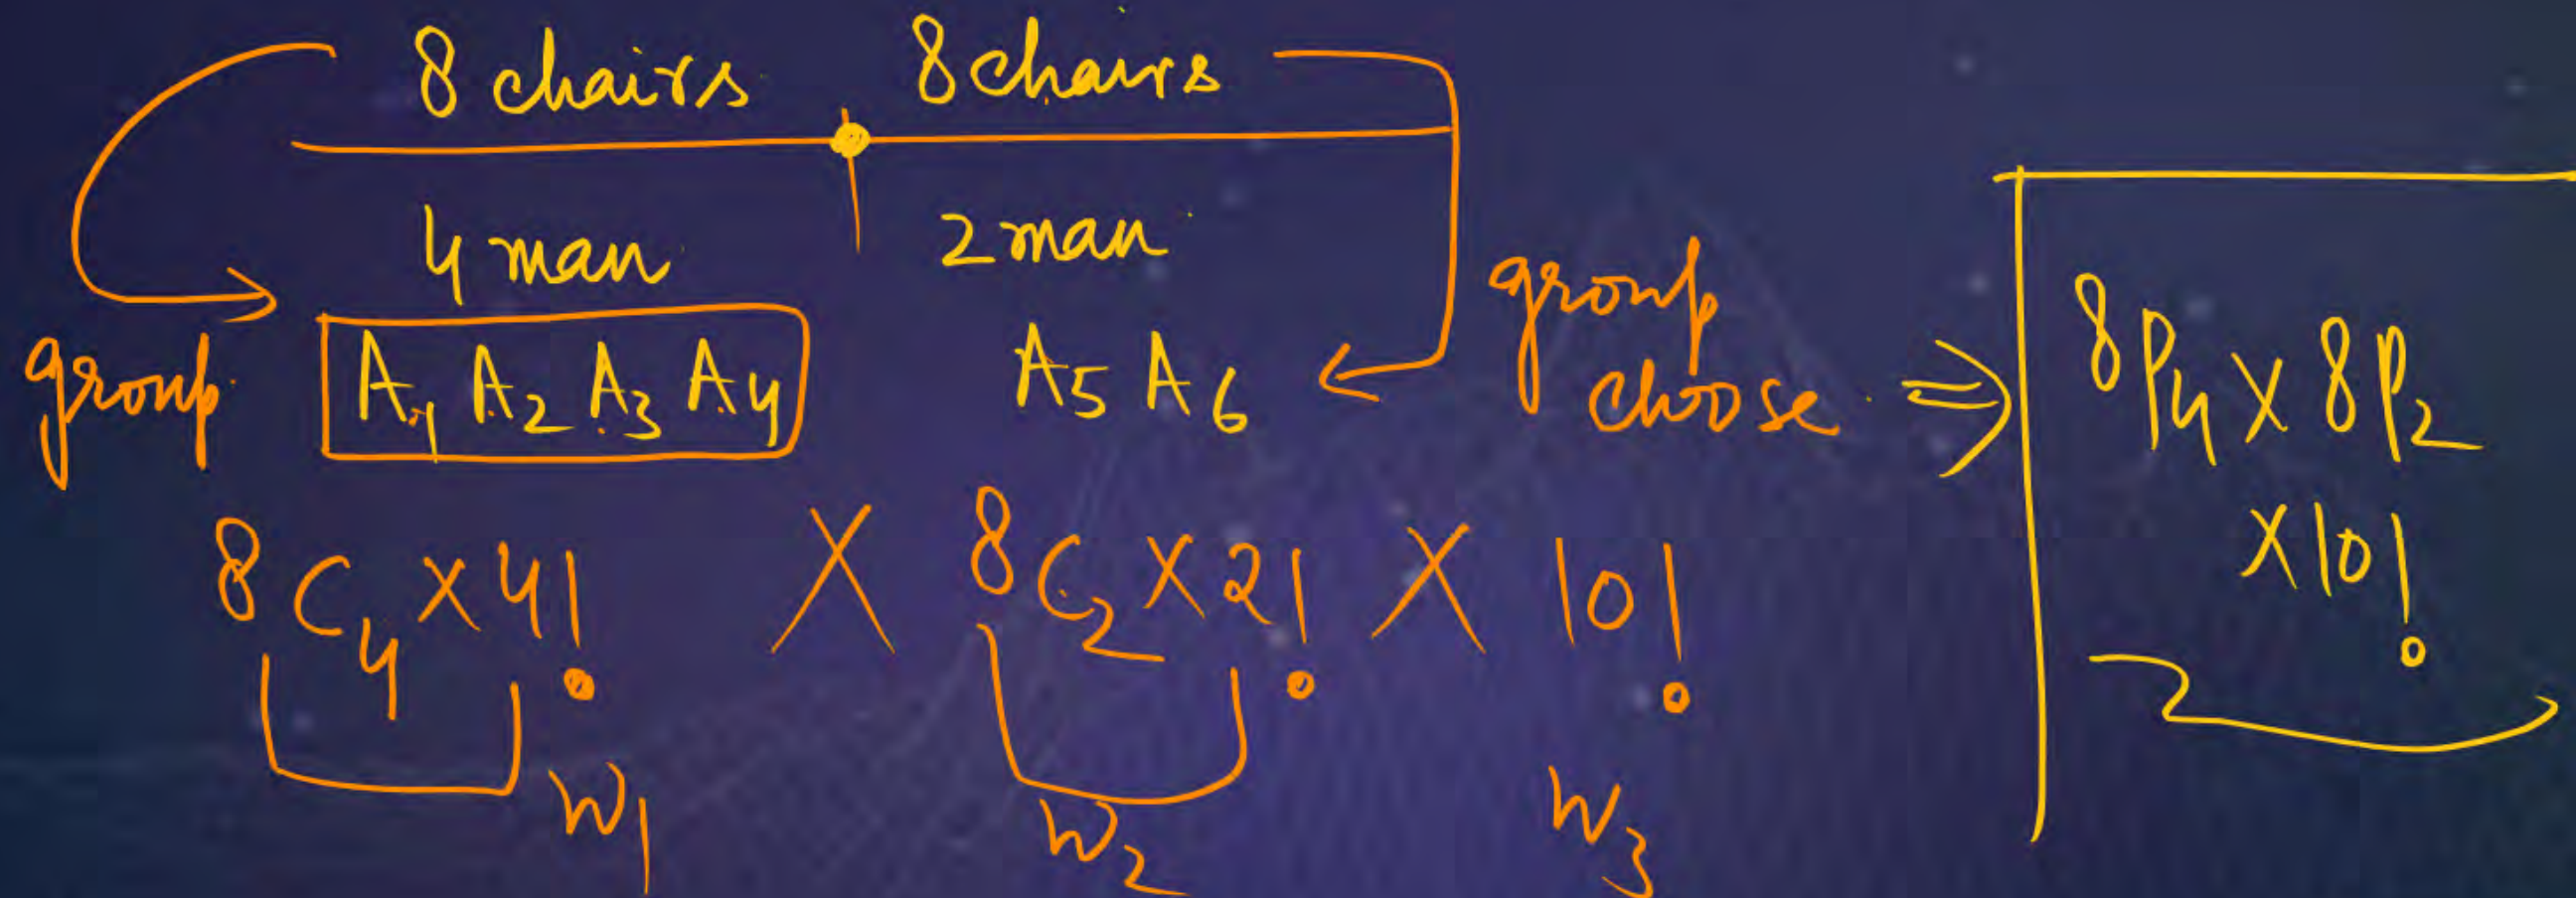 8 chairs 8 chairs
4 man 2 man
group A₁ A₂ A₃ A₄ A₅ A₆ group choose ⇒
⁸P₄ X ⁸P₂
X 10!
⁸C₄ X 4! X ⁸C₂ X 2! X 10!
W₁ W₂ W₃